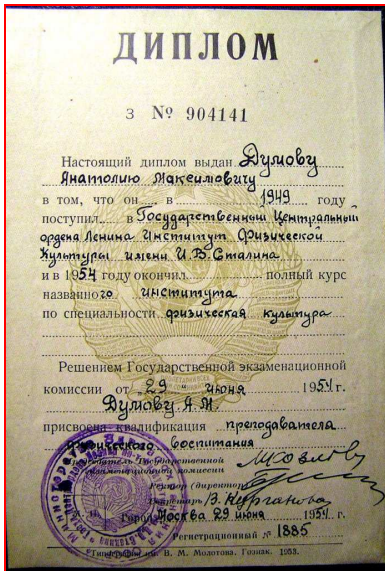 ДИПЛОМ
З № 904141
Настоящий диплом выдан Думову
Анатолию Максимовичу
в том, что он в 1949 году
поступил в Государственный Центральный
ордена Ленина Институт Физической
Культуры имени И.В.Сталина
и в 1954 году окончил полный курс
названного института
по специальности физическая культура
Решением Государственной экзаменационной
комиссии от 29 июня 1954 г.
Думову А.М.
присвоена квалификация преподавателя
физического воспитания
Председатель Государственной
экзаменационной комиссии
Ректор (директор)
Секретарь В. Курганова
Город Москва 29 июня 1954 г.
Регистрационный № 1885
Типография им. В. М. Молотова. Гознак. 1953.